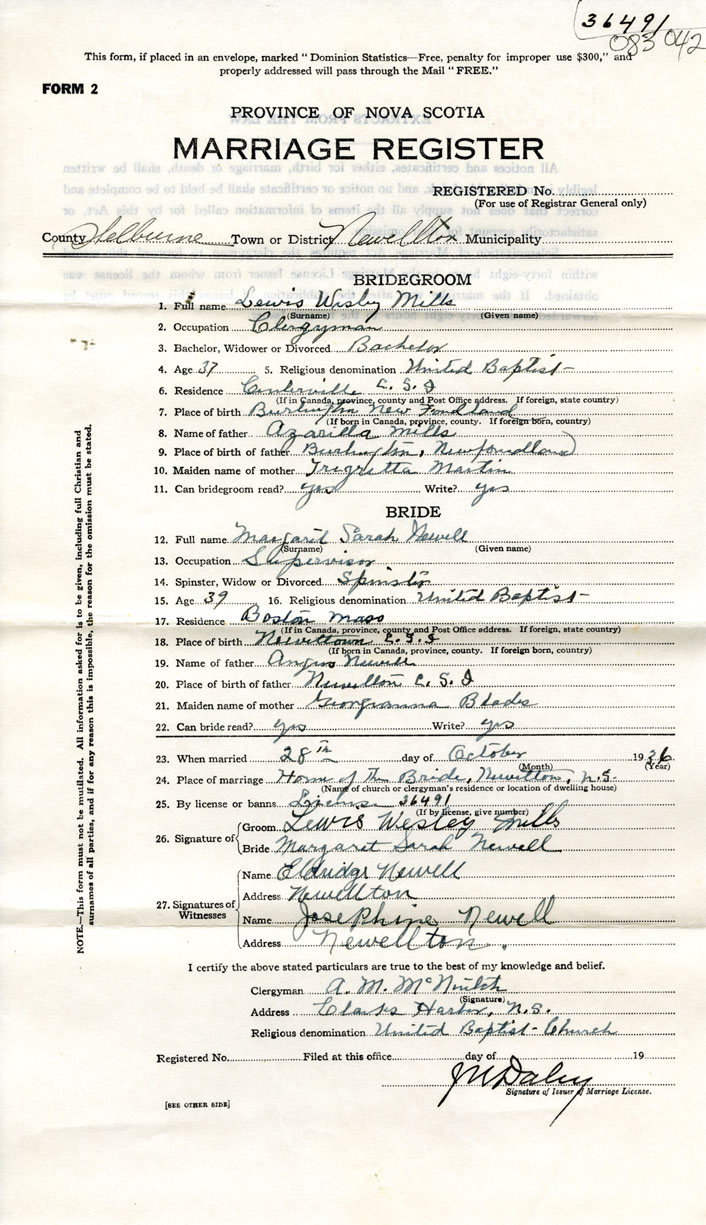 36491
083 042
This form, if placed in an envelope, marked "Dominion Statistics—Free, penalty for improper use $300," and
properly addressed will pass through the Mail "FREE."
FORM 2
PROVINCE OF NOVA SCOTIA
MARRIAGE REGISTER
REGISTERED No.
(For use of Registrar General only)
County Shelburne Town or District Newellton Municipality
BRIDEGROOM
1. Full name Lewis Wesley Mills
(Surname) (Given name)
2. Occupation Clergyman
3. Bachelor, Widower or Divorced Bachelor
4. Age 37 5. Religious denomination United Baptist
6. Residence Centerville C. S. I
(If in Canada, province, county and Post Office address. If foreign, state country)
7. Place of birth Burlington New Fondland
(If born in Canada, province, county. If foreign born, country)
8. Name of father Azarilla Mills
9. Place of birth of father Burlington, Newfoundland
10. Maiden name of mother Trigretta Martin
11. Can bridegroom read? yes Write? yes
BRIDE
12. Full name Margaret Sarah Newell
(Surname) (Given name)
13. Occupation Supervisor
14. Spinster, Widow or Divorced Spinster
15. Age 39 16. Religious denomination United Baptist
17. Residence Boston Mass
(If in Canada, province, county and Post Office address. If foreign, state country)
18. Place of birth Newelltown C. S. I
(If born in Canada, province, county. If foreign born, country)
19. Name of father Angus Newell
20. Place of birth of father Newellton C. S. I
21. Maiden name of mother Georgianna Blades
22. Can bride read? yes Write? yes
23. When married 28th day of October 1936
(Month) (Year)
24. Place of marriage Home of the Bride, Newellton, N.S.
(Name of church or clergyman's residence or location of dwelling house)
25. By license or banns License 36491
(If by license, give number)
26. Signature of Groom Lewis Wesley Mills
Bride Margaret Sarah Newell
27. Signatures of Witnesses
Name Eldridge Newell
Address Newellton
Name Josephine Newell
Address Newellton.
I certify the above stated particulars are true to the best of my knowledge and belief.
Clergyman A. M. McNintch
(Signature)
Address Clarks Harbor, N.S.
Religious denomination United Baptist Church
Registered No. Filed at this office day of 19
Signature of Issuer of Marriage License.
[SEE OTHER SIDE]
NOTE.—This form must not be mutilated. All information asked for is to be given, including full Christian and
surnames of all parties, and if for any reason this is impossible, the reason for the omission must be stated.